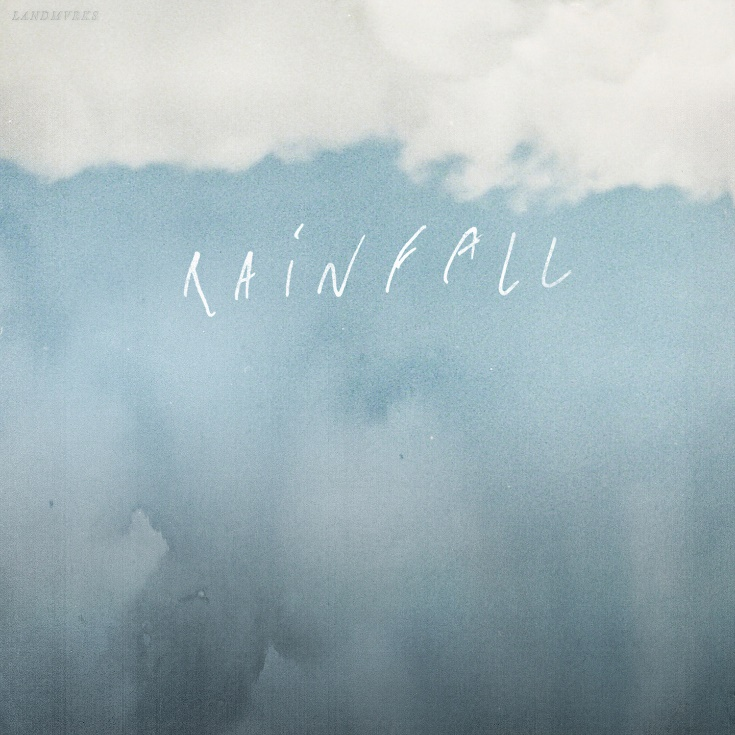 LANDMVRKS
RAiNFALL